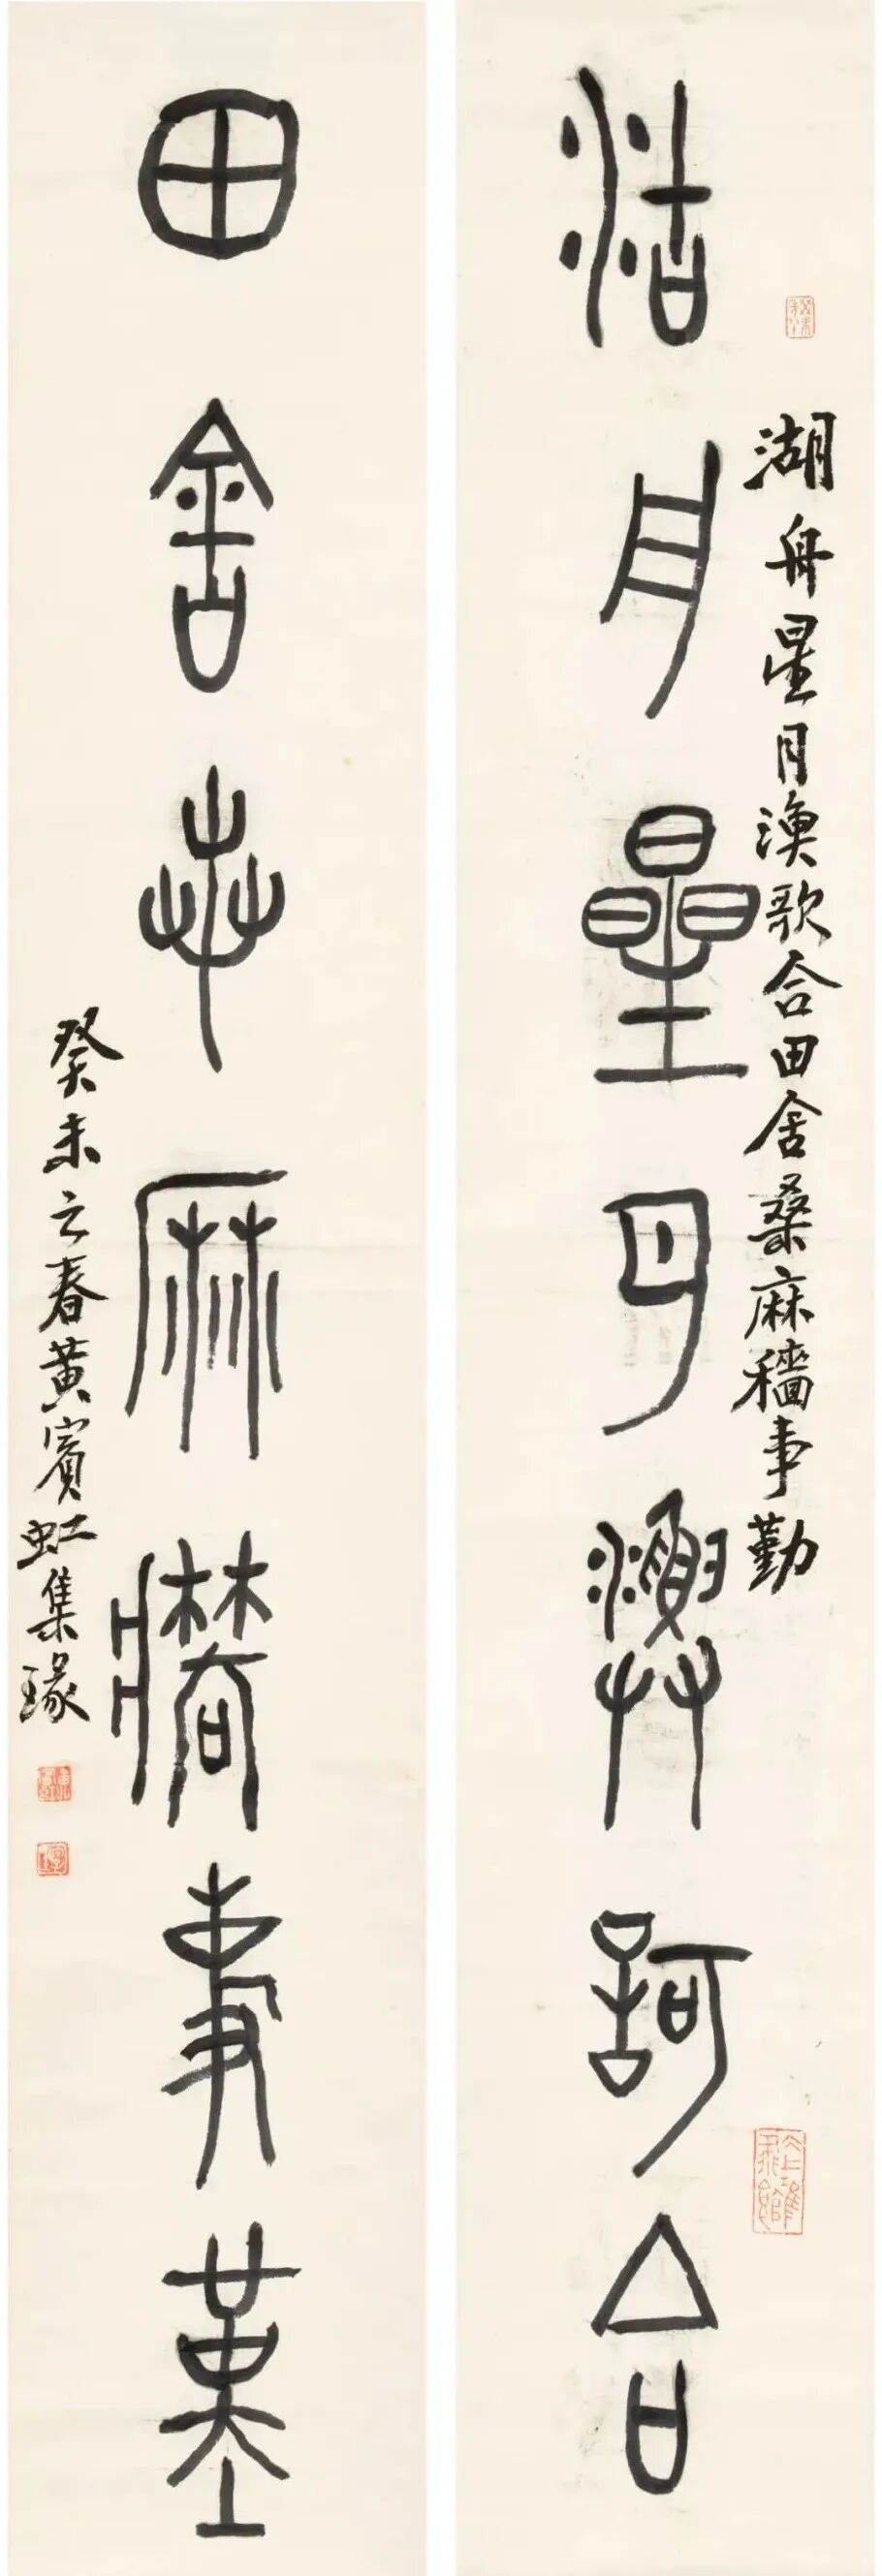 湖舟星月漁歌合
湖舟星月漁歌合田舍桑麻穡事勤
田舍桑麻穡事勤
癸未之春黃賓虹集瑑